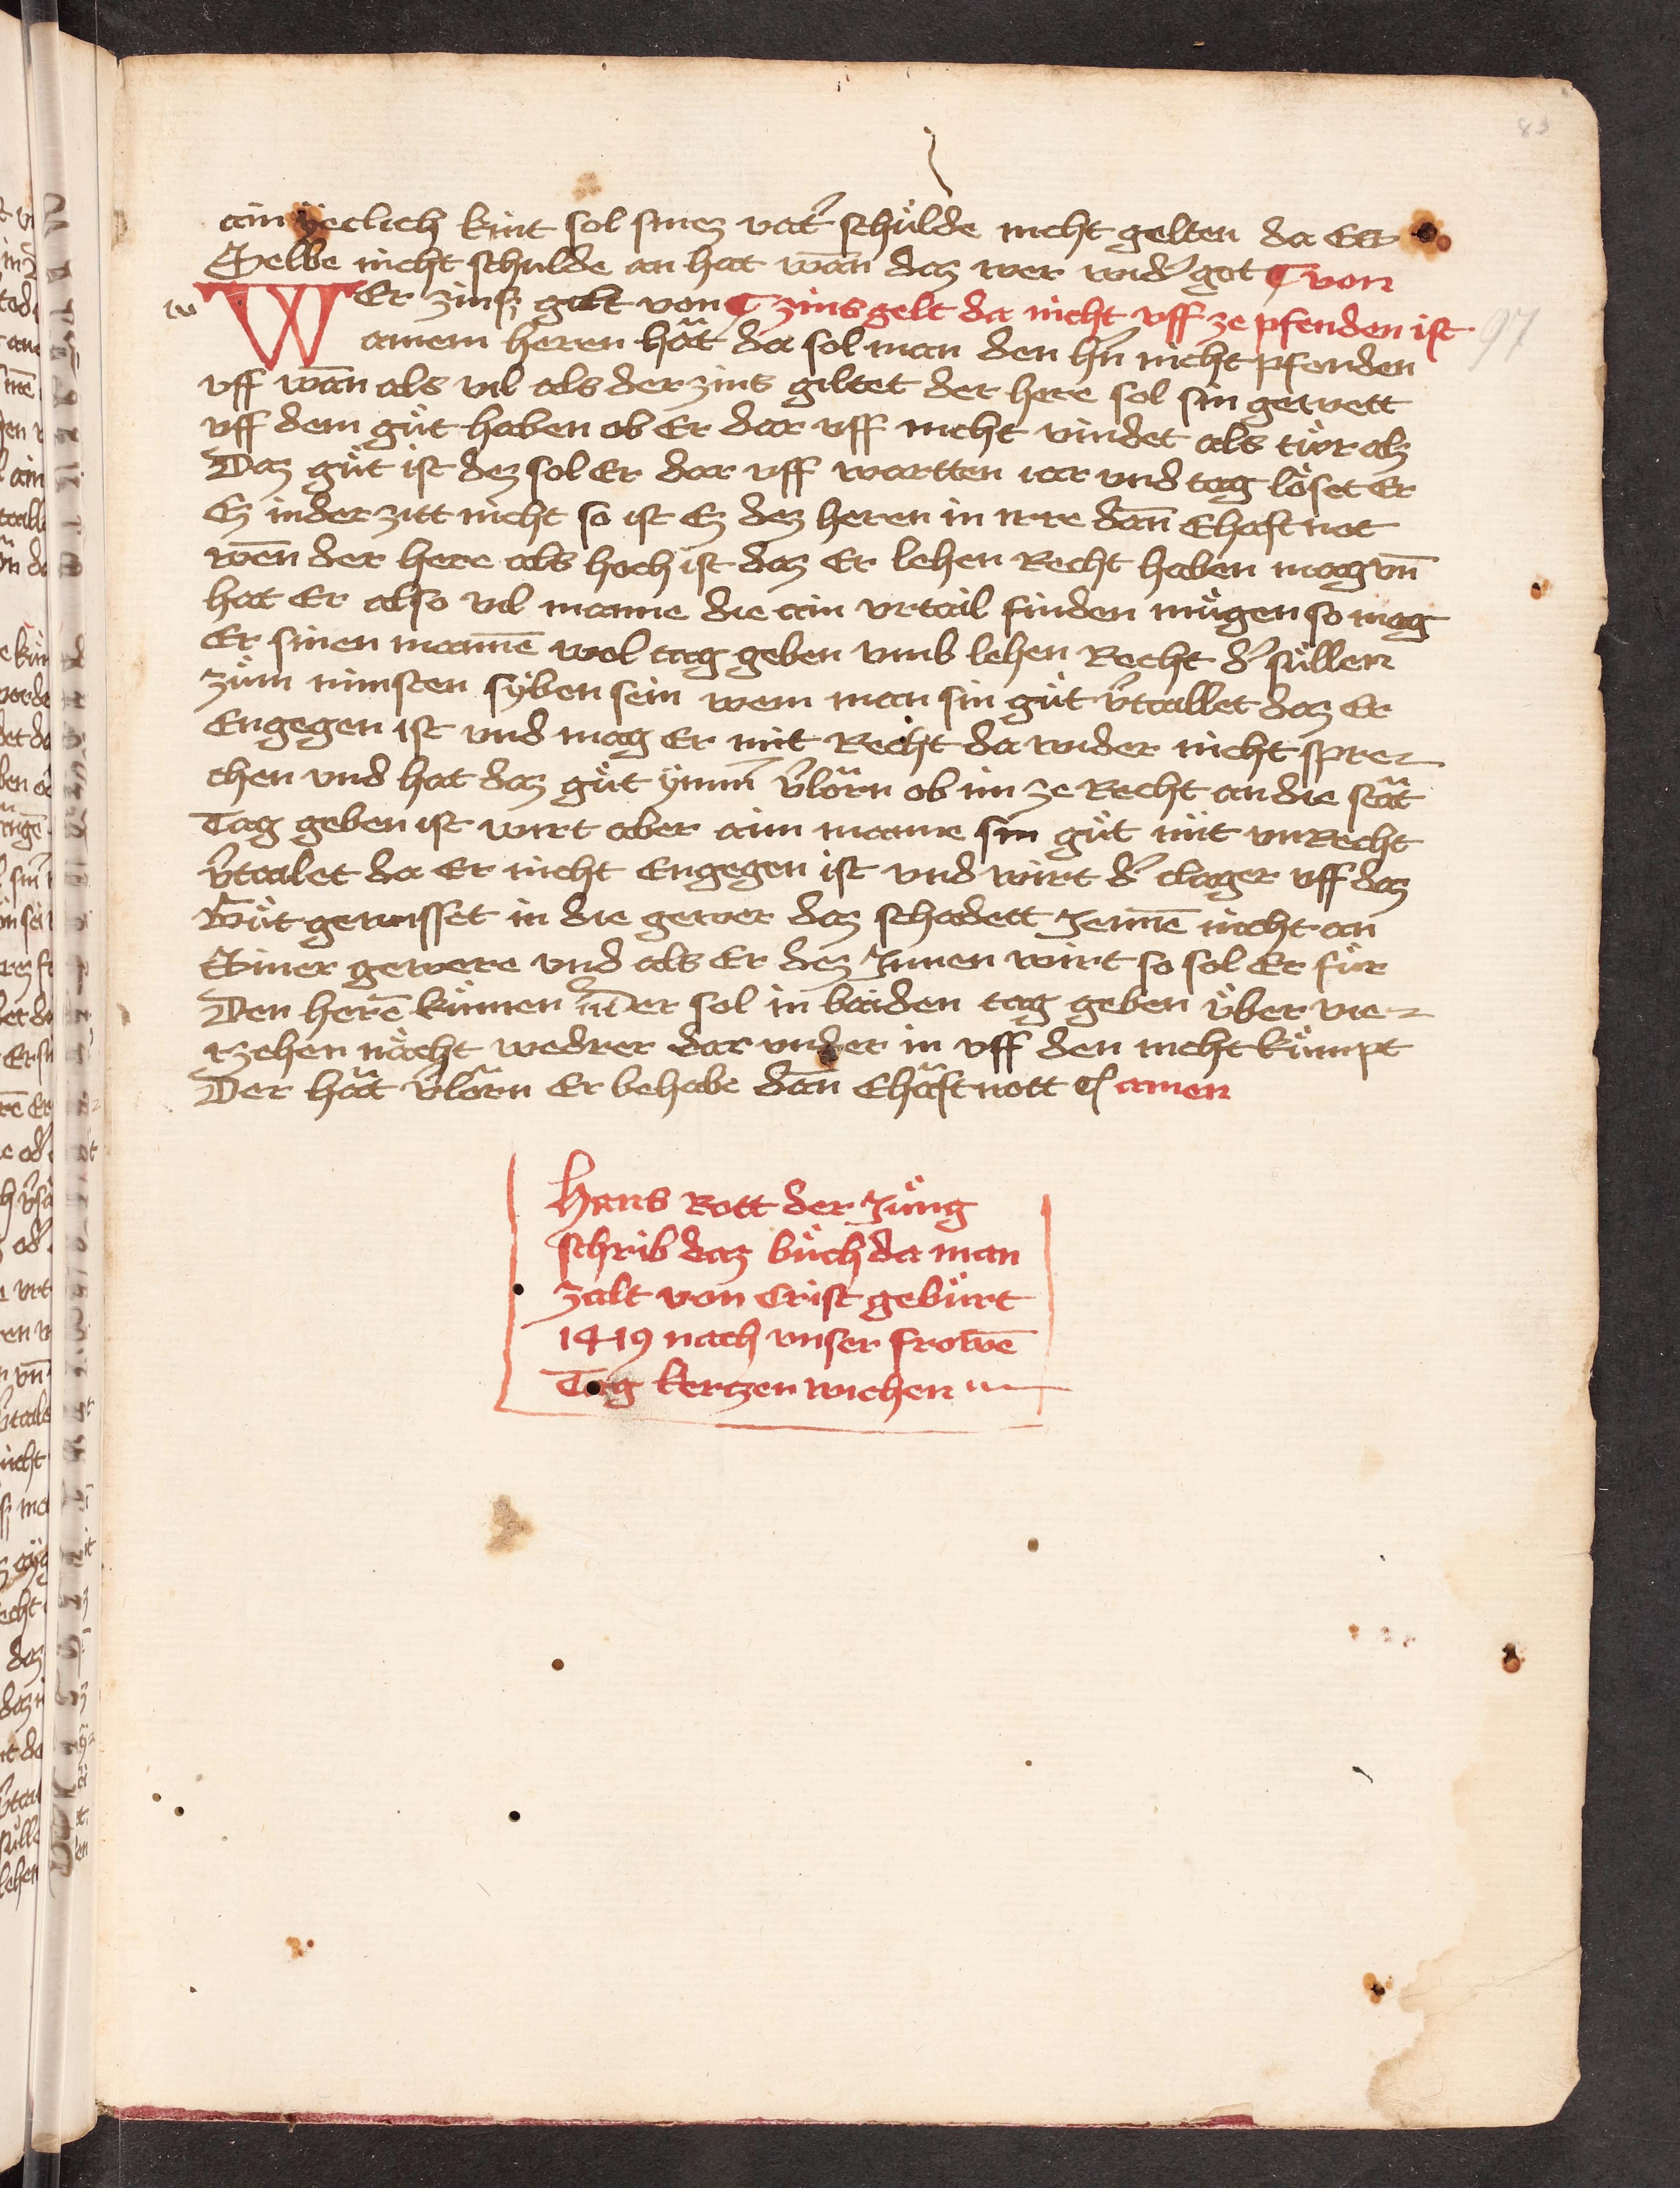 83
ain ÿeclich kint sol sinez vatˀ schuͤlde nicht gelten da Ess
Selbe nicht schulde an hat wān daz wer widˀ got ¶ von
WEr zinß gilt von ¶ zins gelt da nicht vff ze pfenden ist
97
ainem heren hăt da sol man den hˀn nicht pfenden
vff wān als vil als der zins giltet der here sol sin gewett
vff dem guͤt haben ob Er dar vff nicht vindet als tuͤr alz
Daz guͤt ist dez sol Er dar vff wartten iar vnd tag loͤset Er
Ez in der zitt nicht so ist Ez dez heren in irre dān Ehaft not
wēn der here als hoch ist daz Er lehen Recht haben mag vn̄
hat Er also vil manne die ain vrtail finden muͤgen so mag
Er sinen mannē wol tag geben vmb lehen Recht dˀ suͤllen
zuͤm minsten syben sein wem man sin guͤt vˀtaillet daz Er
Engegen ist vnd mag Er mit Recht da wider nicht spre-
chen vnd hat daz guͤt ÿmmˀ vˀlorn ob im ze Recht an die stăt
Tag geben ist wirt aber aim manne sin guͤt mit vnRecht
vˀtailet da Er nicht Engegen ist vnd wirt dˀ clager vff daz
Guͤt gewisset in die gewer daz schadett Jenmē nicht an
Siner gewere vnd als Er dez Innen wirt so sol Er fuͤr
Den herē kuͤmen vn̄ er sol in baiden tag geben uͤber vie-
rzehen naͤcht wedrer dar vnder in vff den nicht kuͤmpt
Der hăt vˀlorn Er behabe dān Ehăft nott ¶ amen
Hans Rott der Juͤng
schrib daz buͤch da man
zalt von Crist gebuͤrt
1419 nach vnser frowē
Tag kerzen wichen